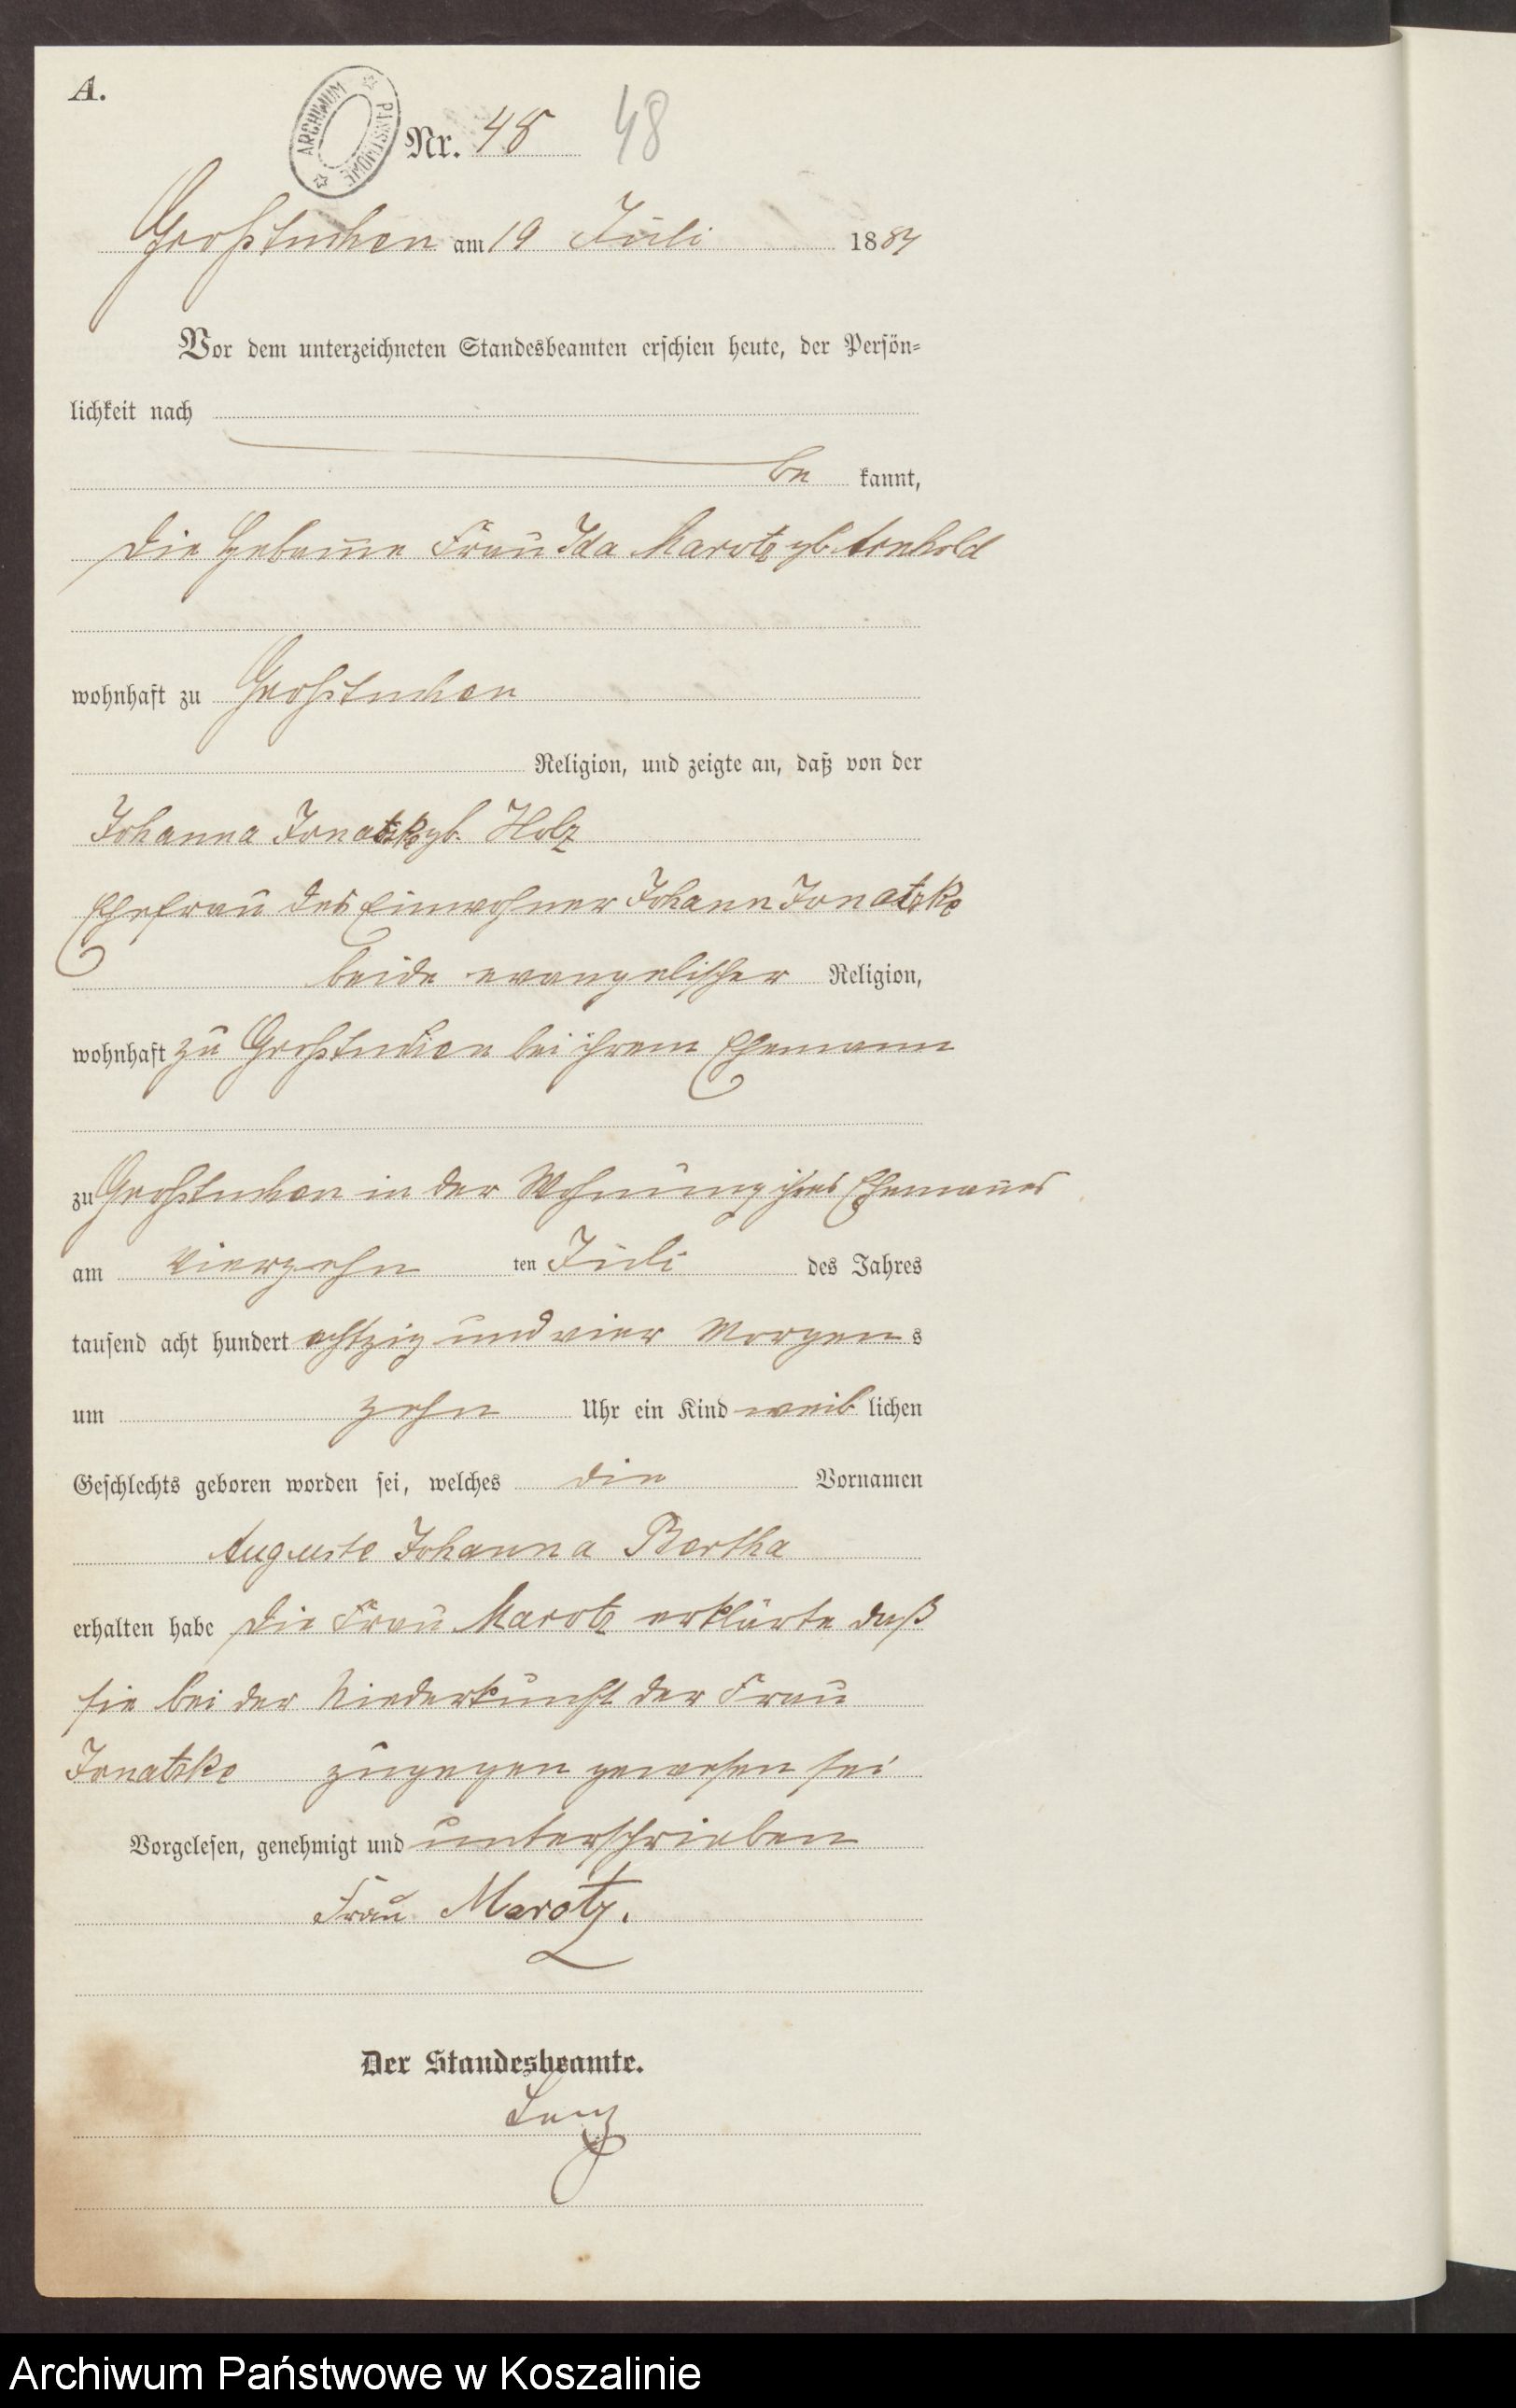 A.
ARCHIWUM PAŃSTWOWE
Nr. 48 48
Großtuchen am 19 Juli 1884
Vor dem unterzeichneten Standesbeamten erschien heute, der Persön=
lichkeit nach
be kannt,
die Hebamme Frau Ida Marotz gb. Arnhold
wohnhaft zu Großtuchen
Religion, und zeigte an, daß von der
Johanna Jonatzke gb. Holz
Ehefrau des Einwohner Johann Jonatzke
beide evangelischer Religion,
wohnhaft zu Großtuchen bei ihrem Ehemann
zu Großtuchen in der Wohnung ihres Ehemannes
am vierzehn ten Juli des Jahres
tausend acht hundert achtzig und vier Morgen s
um zehn Uhr ein Kind weib lichen
Geschlechts geboren worden sei, welches die Vornamen
Auguste Johanna Bertha
erhalten habe die Frau Marotz erklärte daß
sie bei der Niederkunft der Frau
Jonatzke zugegen gewesen sei
Vorgelesen, genehmigt und unterschrieben
Frau Marotz.
Der Standesbeamte.
Lenz
Archiwum Państwowe w Koszalinie